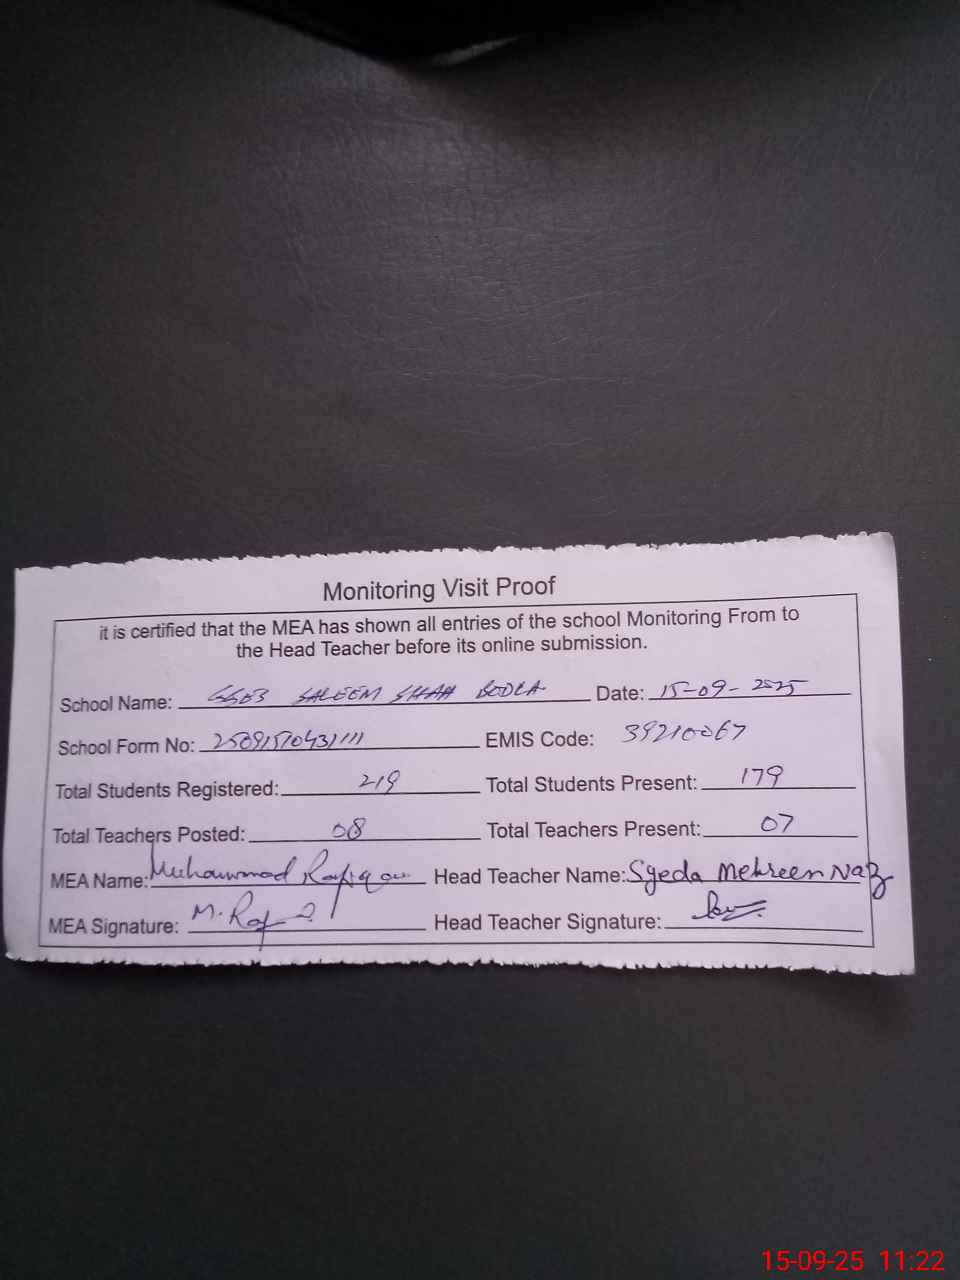 Monitoring Visit Proof
it is certified that the MEA has shown all entries of the school Monitoring From to
the Head Teacher before its online submission.
School Name: SALEEM SHAH Date: 15-09-2025
School Form No: EMIS Code: 39210067
Total Students Registered: 219 Total Students Present: 179
Total Teachers Posted: 08 Total Teachers Present: 07
MEA Name: Muhammad Head Teacher Name: Syeda Mehreen Naz
MEA Signature: Head Teacher Signature:
15-09-25 11:22